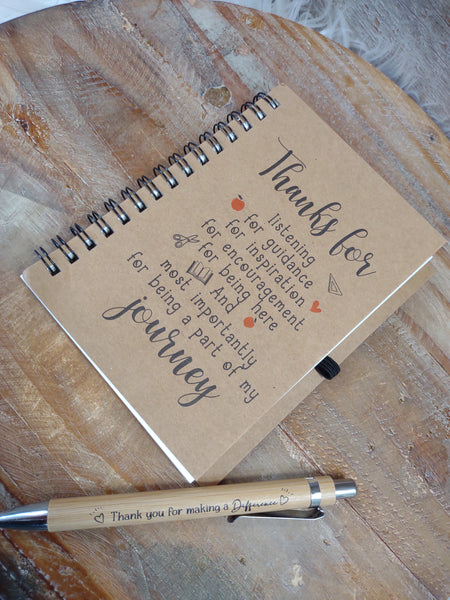 Thanks for
listening
for guidance
for inspiration
for encouragement
for being here
And
most importantly
for being a part of my
journey
Thank you for making a Difference